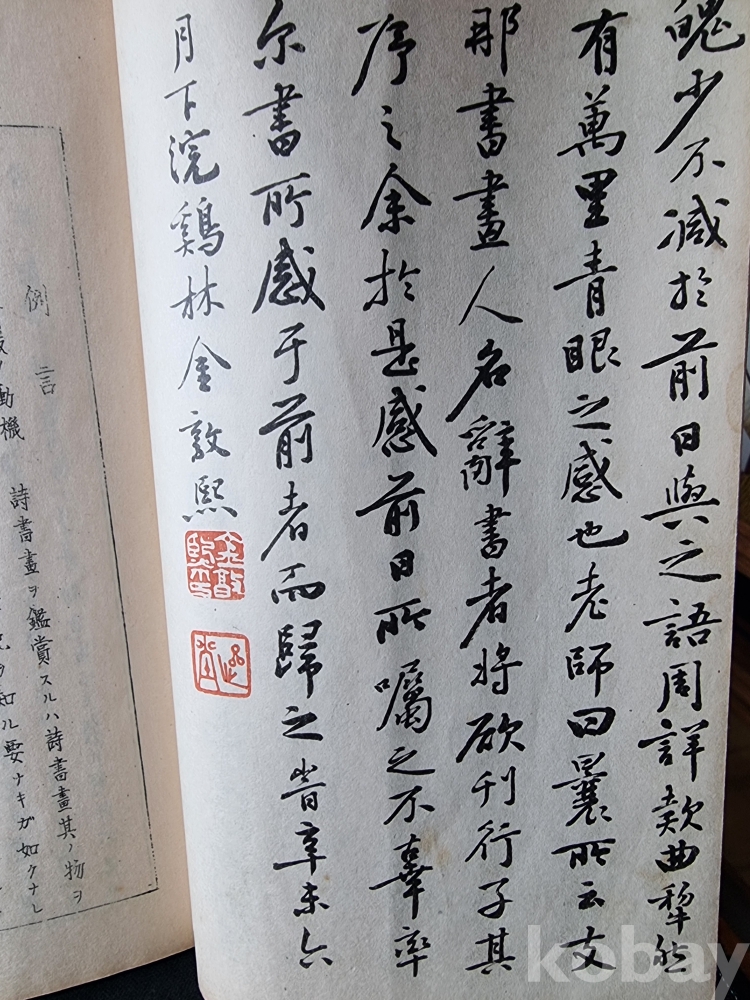 魄少不減於前日與之語周詳款曲犁然
有萬里青眼之感也老師曰曩所云支
那書畫人名辭書者將欲刊行子其
序之余於是感前日所囑之不辜率
尔書所感于前者而歸之昔辛未六
月下浣鷄林金敦熙
例言
動機
詩書畫ヲ鑑賞スルハ詩書畫其ノ物ヲ
知ル要ナキガ如クナレ
kobay